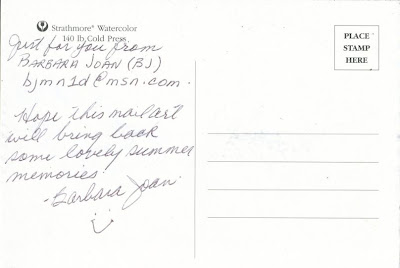 Strathmore® Watercolor
140 lb. Cold Press
Just for you from
BARBARA JOAN (BJ)
bjmn1d@msn.com.
Hope this mail art
will bring back
some lovely summer
memories!
-Barbara Joan.
PLACE
STAMP
HERE